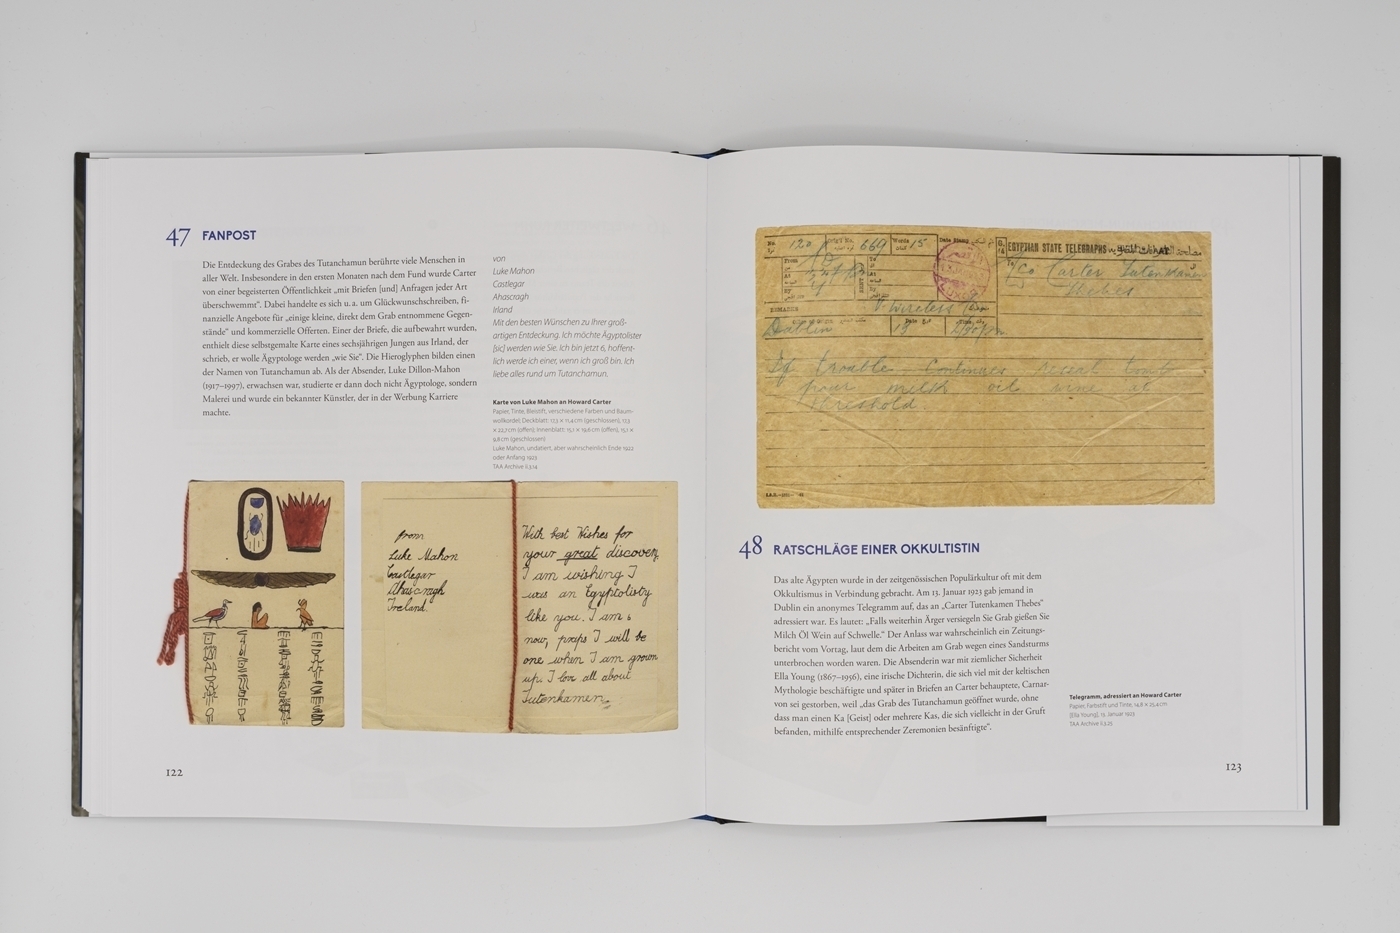 47 FANPOST
Die Entdeckung des Grabes des Tutanchamun berührte viele Menschen in
aller Welt. Insbesondere in den ersten Monaten nach dem Fund wurde Carter
von einer begeisterten Öffentlichkeit „mit Briefen [und] Anfragen jeder Art
überschwemmt“. Dabei handelte es sich u. a. um Glückwunschschreiben, fi-
nanzielle Angebote für „einige kleine, direkt dem Grab entnommene Gegen-
stände“ und kommerzielle Offerten. Einer der Briefe, die aufbewahrt wurden,
enthielt diese selbstgemalte Karte eines sechsjährigen Jungen aus Irland, der
schrieb, er wolle Ägyptologe werden „wie Sie“. Die Hieroglyphen bilden einen
der Namen von Tutanchamun ab. Als der Absender, Luke Dillon-Mahon
(1917–1997), erwachsen war, studierte er dann doch nicht Ägyptologe, sondern
Malerei und wurde ein bekannter Künstler, der in der Werbung Karriere
machte.
von
Luke Mahon
Castlegar
Ahascragh
Irland
Mit den besten Wünschen zu Ihrer groß-
artigen Entdeckung. Ich möchte Ägyptolister
[sic] werden wie Sie. Ich bin jetzt 6, hoffent-
lich werde ich einer, wenn ich groß bin. Ich
liebe alles rund um Tutanchamun.
Karte von Luke Mahon an Howard Carter
Papier, Tinte, Bleistift, verschiedene Farben und Baum-
wollkordel; Deckblatt: 17,3 × 11,4 cm (geschlossen), 17,3
× 22,7 cm (offen); Innenblatt: 15,1 × 19,6 cm (offen), 15,1 ×
9,8 cm (geschlossen)
Luke Mahon, undatiert, aber wahrscheinlich Ende 1922
oder Anfang 1923
TAA Archive ii.3.14
from
Luke Mahon
Castlegar
Ahascragh
Ireland.
With best Wishes for
your great discovery
I am wishing I
was an Egyptolisty
like you. I am 6
now, praps I will be
one when I am grown
up. I love all about
Tutenkamen.
122
No. 120 669 Words 15 Date Stamp EGYPTIAN STATE TELEGRAPHS
From To To Carter Tutenkamen
At At Thebes
By By
REMARKS Wireless
Dublin 13
If trouble continues reseal tomb
pour milk oil wine at
threshold.
48 RATSCHLÄGE EINER OKKULTISTIN
Das alte Ägypten wurde in der zeitgenössischen Populärkultur oft mit dem
Okkultismus in Verbindung gebracht. Am 13. Januar 1923 gab jemand in
Dublin ein anonymes Telegramm auf, das an „Carter Tutenkamen Thebes“
adressiert war. Es lautet: „Falls weiterhin Ärger versiegeln Sie Grab gießen Sie
Milch Öl Wein auf Schwelle.“ Der Anlass war wahrscheinlich ein Zeitungs-
bericht vom Vortag, laut dem die Arbeiten am Grab wegen eines Sandsturms
unterbrochen worden waren. Die Absenderin war mit ziemlicher Sicherheit
Ella Young (1867–1956), eine irische Dichterin, die sich viel mit der keltischen
Mythologie beschäftigte und später in Briefen an Carter behauptete, Carnar-
von sei gestorben, weil „das Grab des Tutanchamun geöffnet wurde, ohne
dass man einen Ka [Geist] oder mehrere Kas, die sich vielleicht in der Gruft
befanden, mithilfe entsprechender Zeremonien besänftigte“.
Telegramm, adressiert an Howard Carter
Papier, Farbstift und Tinte, 14,8 × 23,4 cm
[Ella Young], 13. Januar 1923
TAA Archive ii.3.25
123